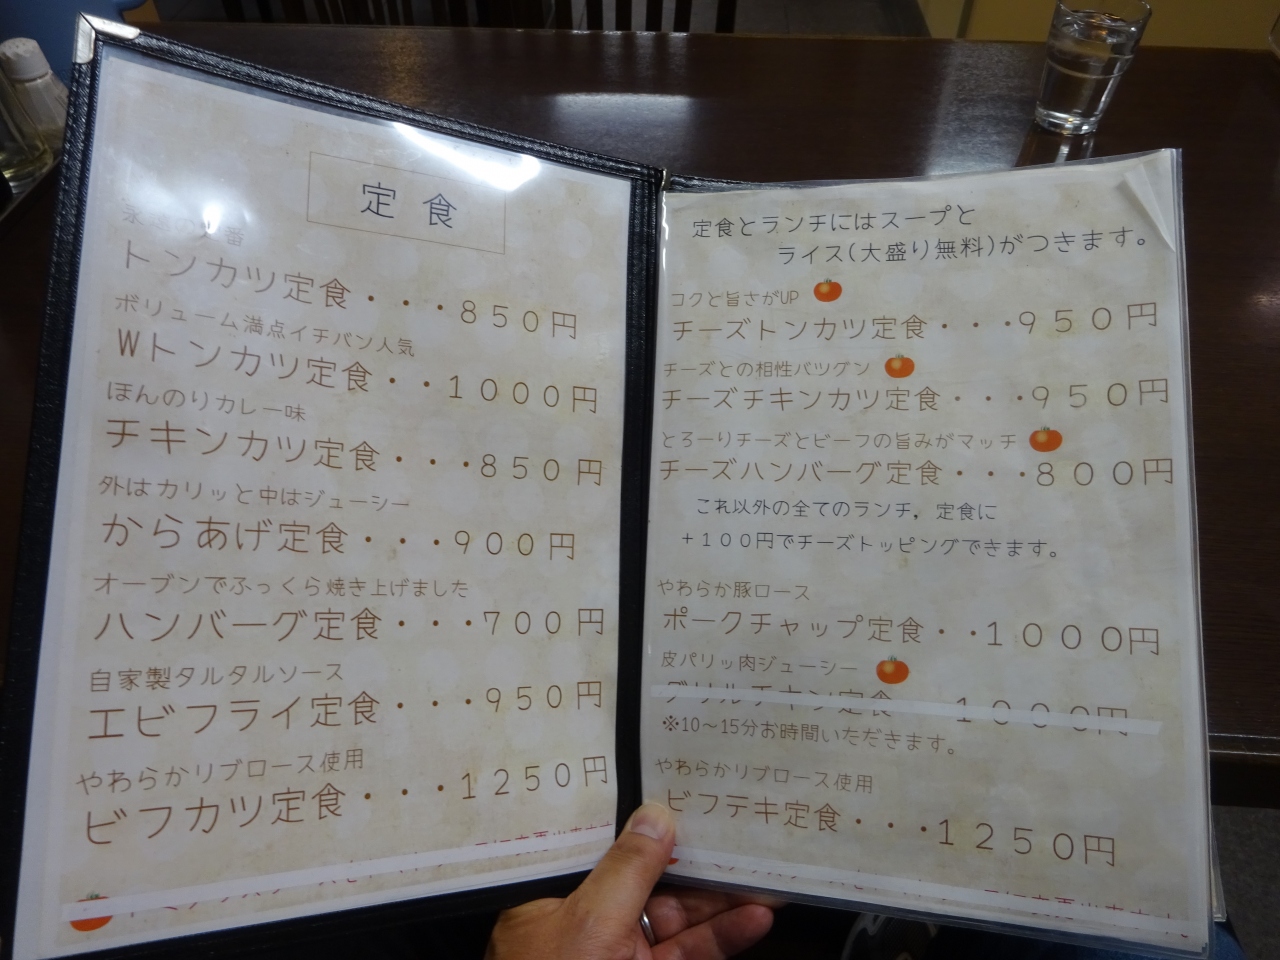 定食
トンカツ定食・・・850円
ボリューム満点イチバン人気
Wトンカツ定食・・1000円
ほんのりカレー味
チキンカツ定食・・・850円
外はカリッと中はジューシー
からあげ定食・・・900円
オーブンでふっくら焼き上げました
ハンバーグ定食・・・700円
自家製タルタルソース
エビフライ定食・・・950円
やわらかリブロース使用
ビフカツ定食・・・1250円
定食とランチにはスープと
ライス(大盛り無料)がつきます。
コクと旨さがUP
チーズトンカツ定食・・・950円
チーズとの相性バツグン
チーズチキンカツ定食・・・950円
とろーりチーズとビーフの旨みがマッチ
チーズハンバーグ定食・・・800円
これ以外の全てのランチ,定食に
+100円でチーズトッピングできます。
やわらか豚ロース
ポークチャップ定食・・1000円
皮パリッ肉ジューシー
グリルチキン定食 1000円
※10〜15分お時間いただきます。
やわらかリブロース使用
ビフテキ定食・・・1250円